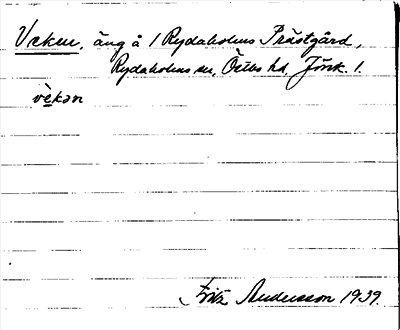 Veken, äng å 1 Rydaholms Prästgård,
Rydaholms sn, Östbo hd, Jönk. l.
vèkən
Fritz Andersson 1939.